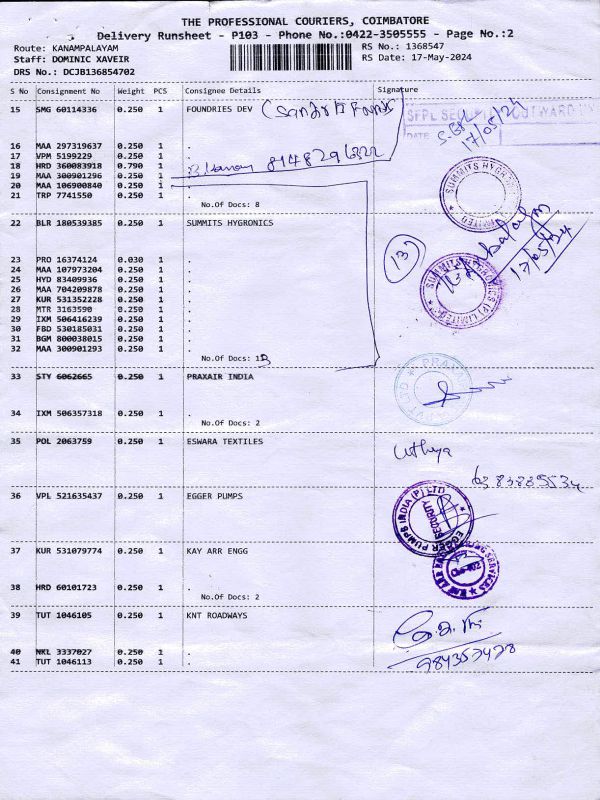 THE PROFESSIONAL COURIERS, COIMBATORE
Delivery Runsheet - P103 - Phone No.:0422-3505555 - Page No.:2
Route: KANAMPALAYAM RS No.: 1368547
Staff: DOMINIC XAVEIR RS Date: 17-May-2024
DRS No.: DCJB136854702
S No Consignment No Weight PCS Consignee Details Signature
15 SMG 60114336 0.250 1 FOUNDRIES DEV
17/05/24
16 MAA 297319637 0.250 1 .
17 VPM 5199229 0.250 1 .
18 HRD 360083918 0.790 1 . 8148296322
19 MAA 300901296 0.250 1 .
20 MAA 106900840 0.250 1 .
21 TRP 7741550 0.250 1 .
No.Of Docs: 8
SUMMITS HYGRONICS
22 BLR 180539385 0.250 1 SUMMITS HYGRONICS
137
17/05/24
23 PRO 16374124 0.030 1 .
24 MAA 107973204 0.250 1 .
25 HYD 83409936 0.250 1 .
26 MAA 704209878 0.250 1 .
27 KUR 531352228 0.250 1 .
28 MTR 3163590 0.250 1 .
29 IXM 506416239 0.250 1 .
30 FBD 530185031 0.250 1 .
31 BGM 800038015 0.250 1 .
32 MAA 300901293 0.250 1 .
SUMMITS HYGRONICS (P) LIMITED
No.Of Docs: 13
33 STY 6062665 0.250 1 PRAXAIR INDIA
34 IXM 506357318 0.250 1 .
No.Of Docs: 2
35 POL 2063759 0.250 1 ESWARA TEXTILES
36 VPL 521635437 0.250 1 EGGER PUMPS
EGGER PUMPS INDIA (P) LTD
SECURITY
37 KUR 531079774 0.250 1 KAY ARR ENGG
38 HRD 60101723 0.250 1 .
No.Of Docs: 2
39 TUT 1046105 0.250 1 KNT ROADWAYS
40 NKL 3337027 0.250 1 .
41 TUT 1046113 0.250 1 .